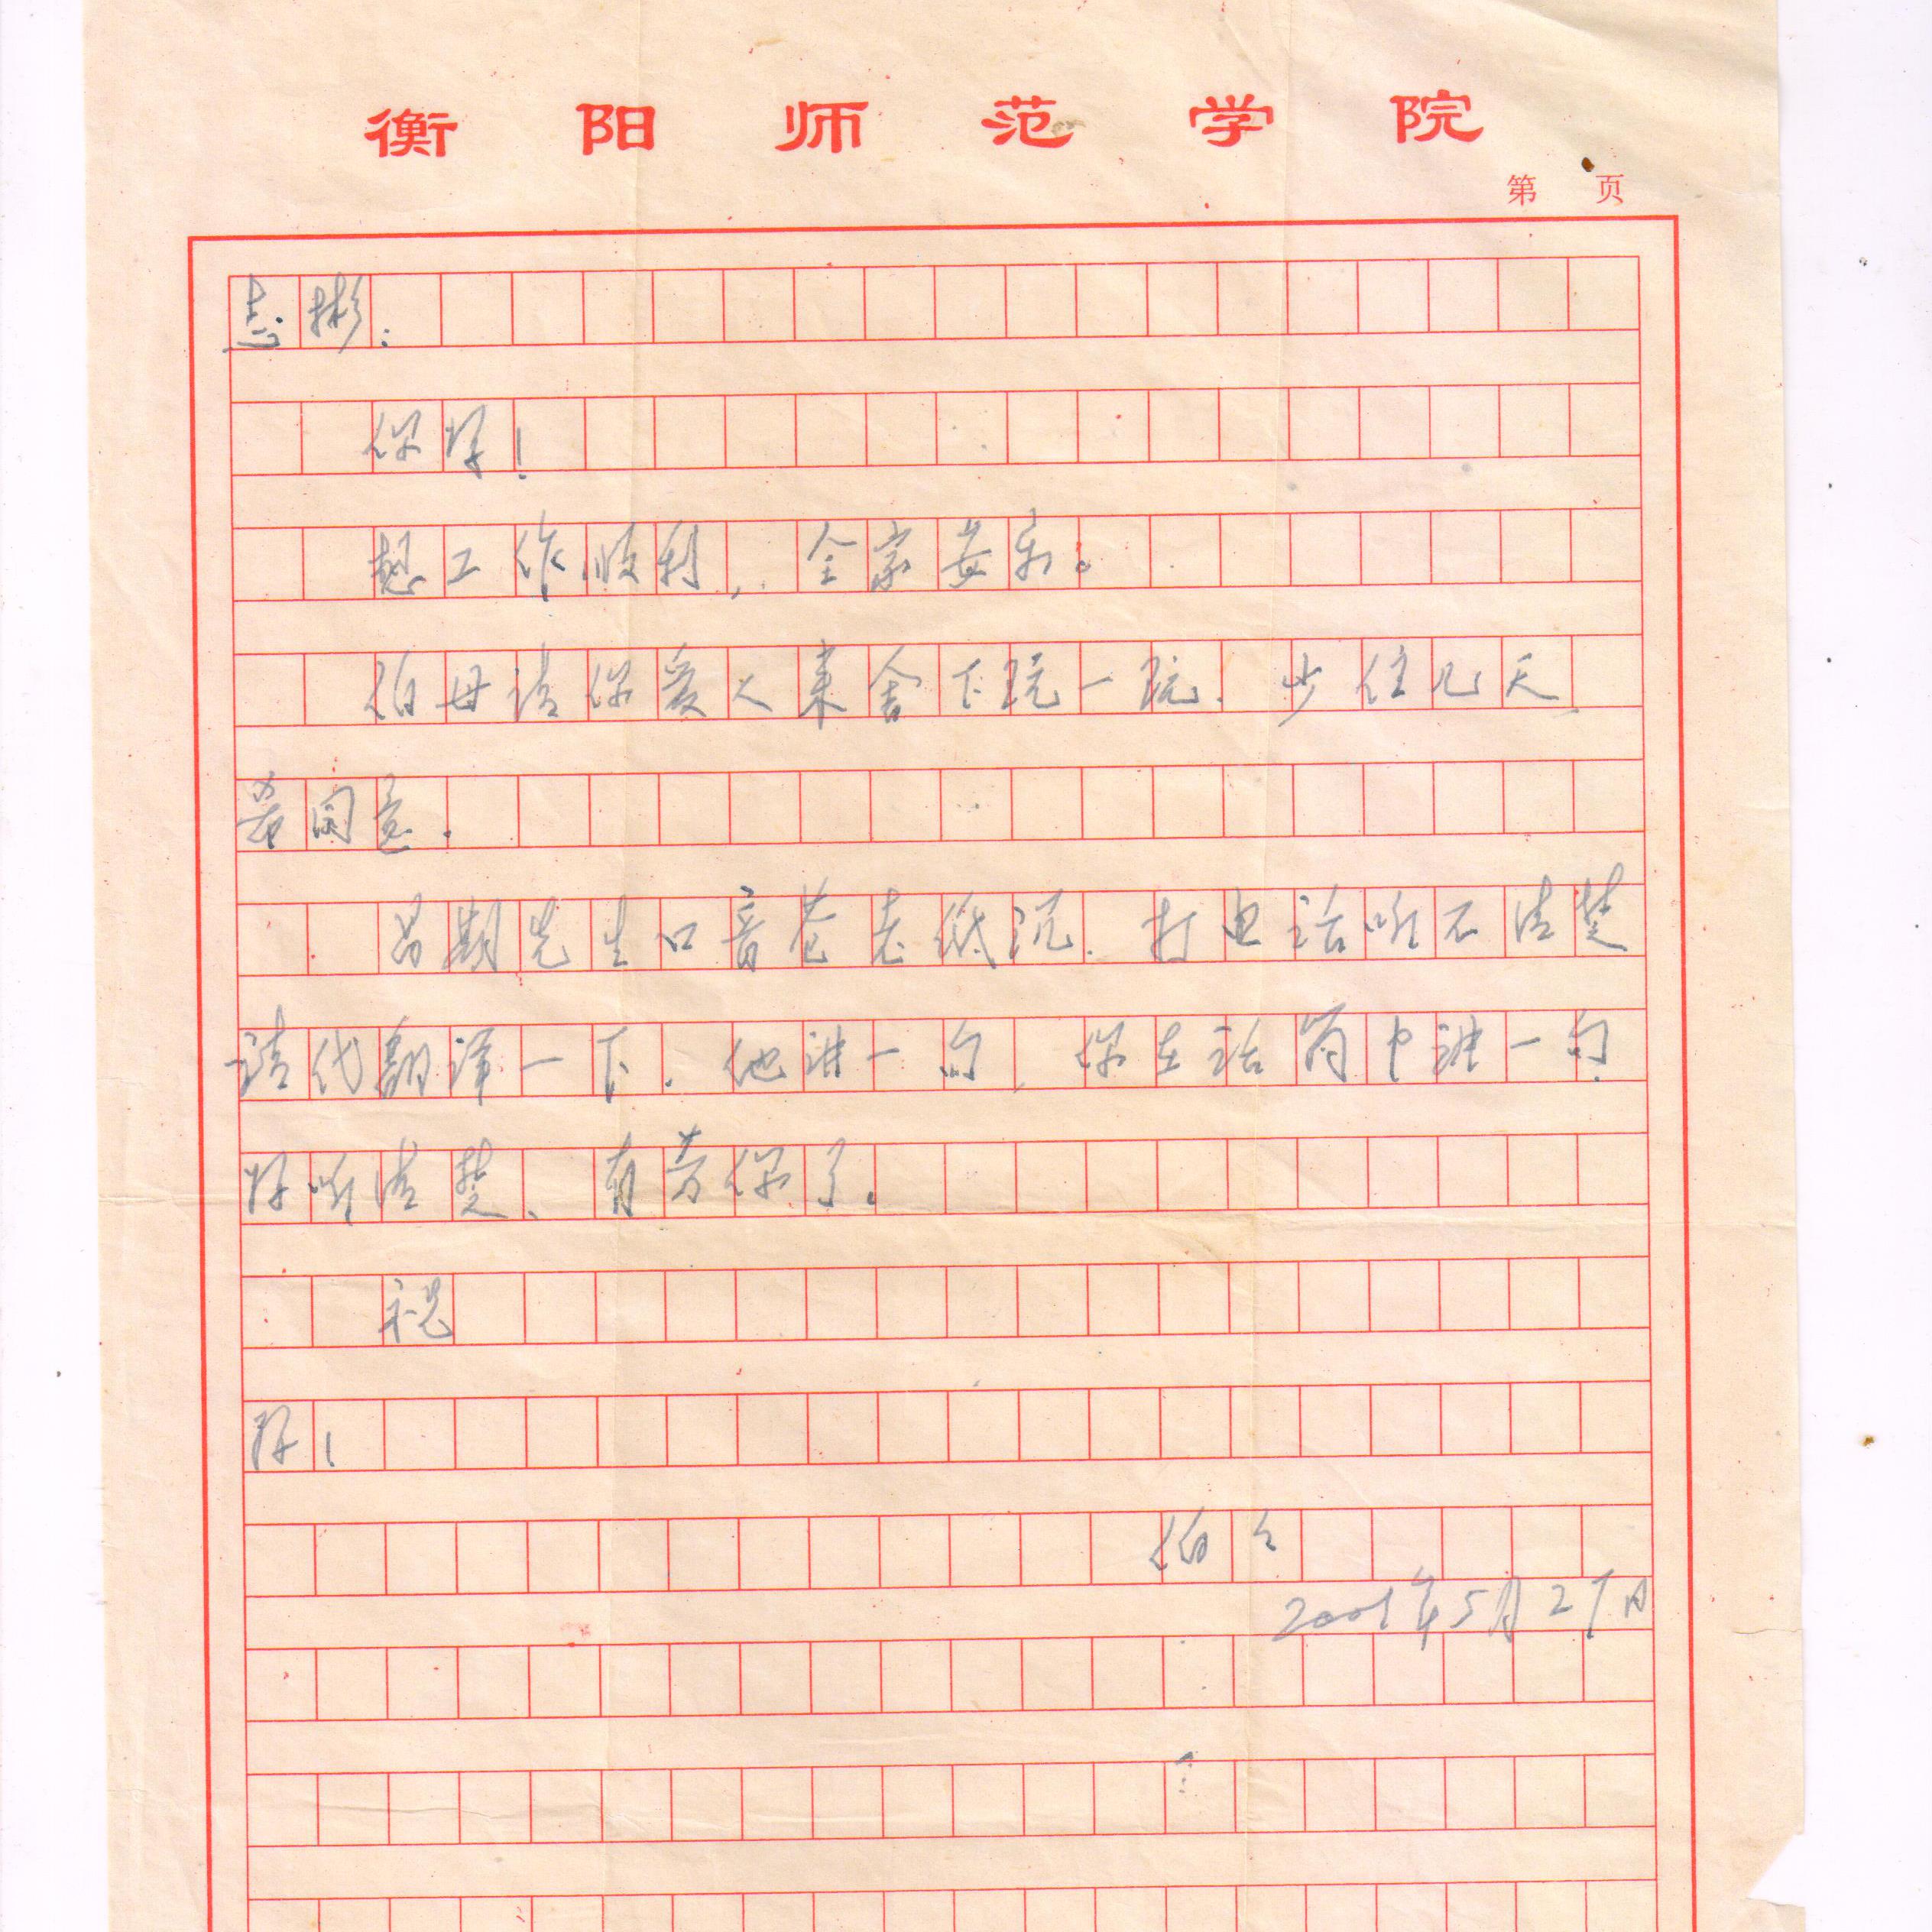 衡阳师范学院
第 页
志彬：
你好！
想工作顺利，全家安乐。
伯母请你爱人来舍下玩一玩．少住几天，
希同意．
昌期先生口音苍老低沉．打电话听不清楚
请代翻译一下．他讲一句，你在话筒中讲一句．
好听清楚、有劳你了。
祝
好！
伯
2001年5月27日